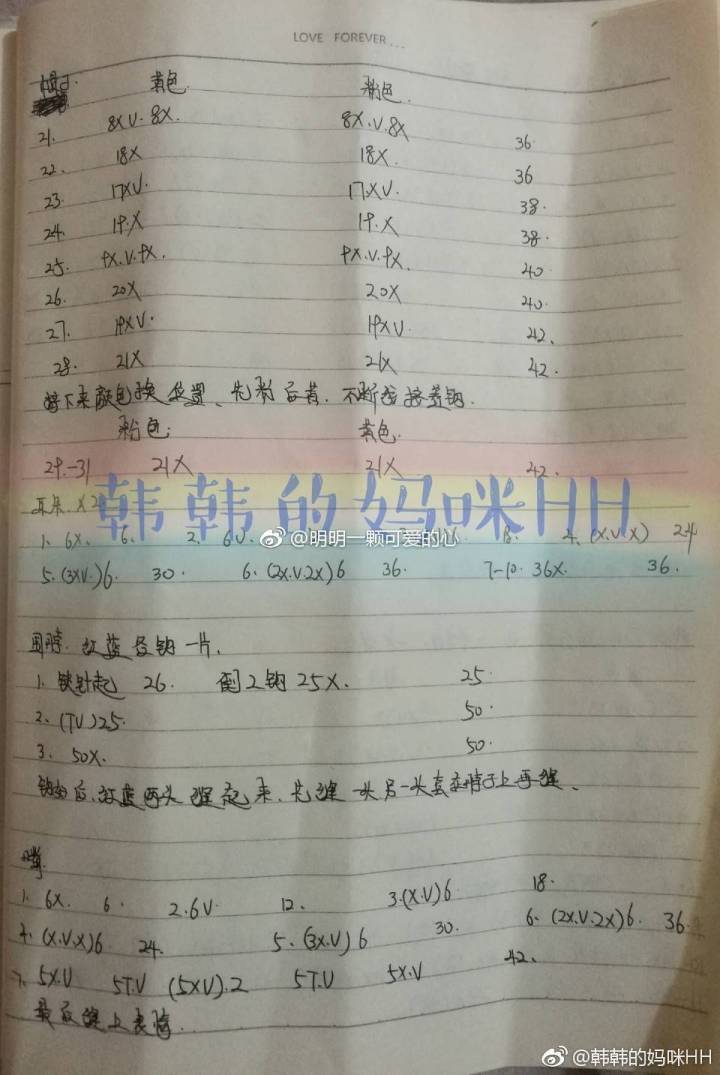 LOVE FOREVER...
帽子. 黄色 粉色
21. 8XV.8X. 8X.V.8X 36.
22. 18X 18X. 36
23. 17XV. 17.XV. 38.
24. 19.X 19.X 38.
25. 9X.V.9X. 9X.V.9X. 40.
26. 20X 20X 40.
27. 19XV. 19XV 42.
28. 21X 21X 42.
接下来颜色换位置、先粉后黄.不断线接着钩.
粉色: 黄色.
29.-31 21X 21X 42.
韩韩的妈咪HH
耳朵.X2
@明明一颗可爱的心
1. 6X. 6. 2. 6V. 18. 4. (X.V.X) 24
5.(3XV.)6. 30. 6.(2X.V.2X)6 36. 7-10. 36X. 36.
围脖. 红蓝各钩一片.
1. 锁针起 26. 倒2钩25X. 25.
2. (TV)25. 50.
3. 50X. 50.
钩好后、红蓝两头缝起来、先缝一头另一头套在脖子上再缝、
嘴
1. 6X. 6. 2.6V. 12. 3.(X.V)6 18.
4.(X.V.X)6 24. 5.(3X.V)6 30. 6.(2X.V.2X)6. 36.
7. 5X.V 5T.V (5XV).2 5T.V 5X.V 42.
最后缝上表情.
@韩韩的妈咪HH